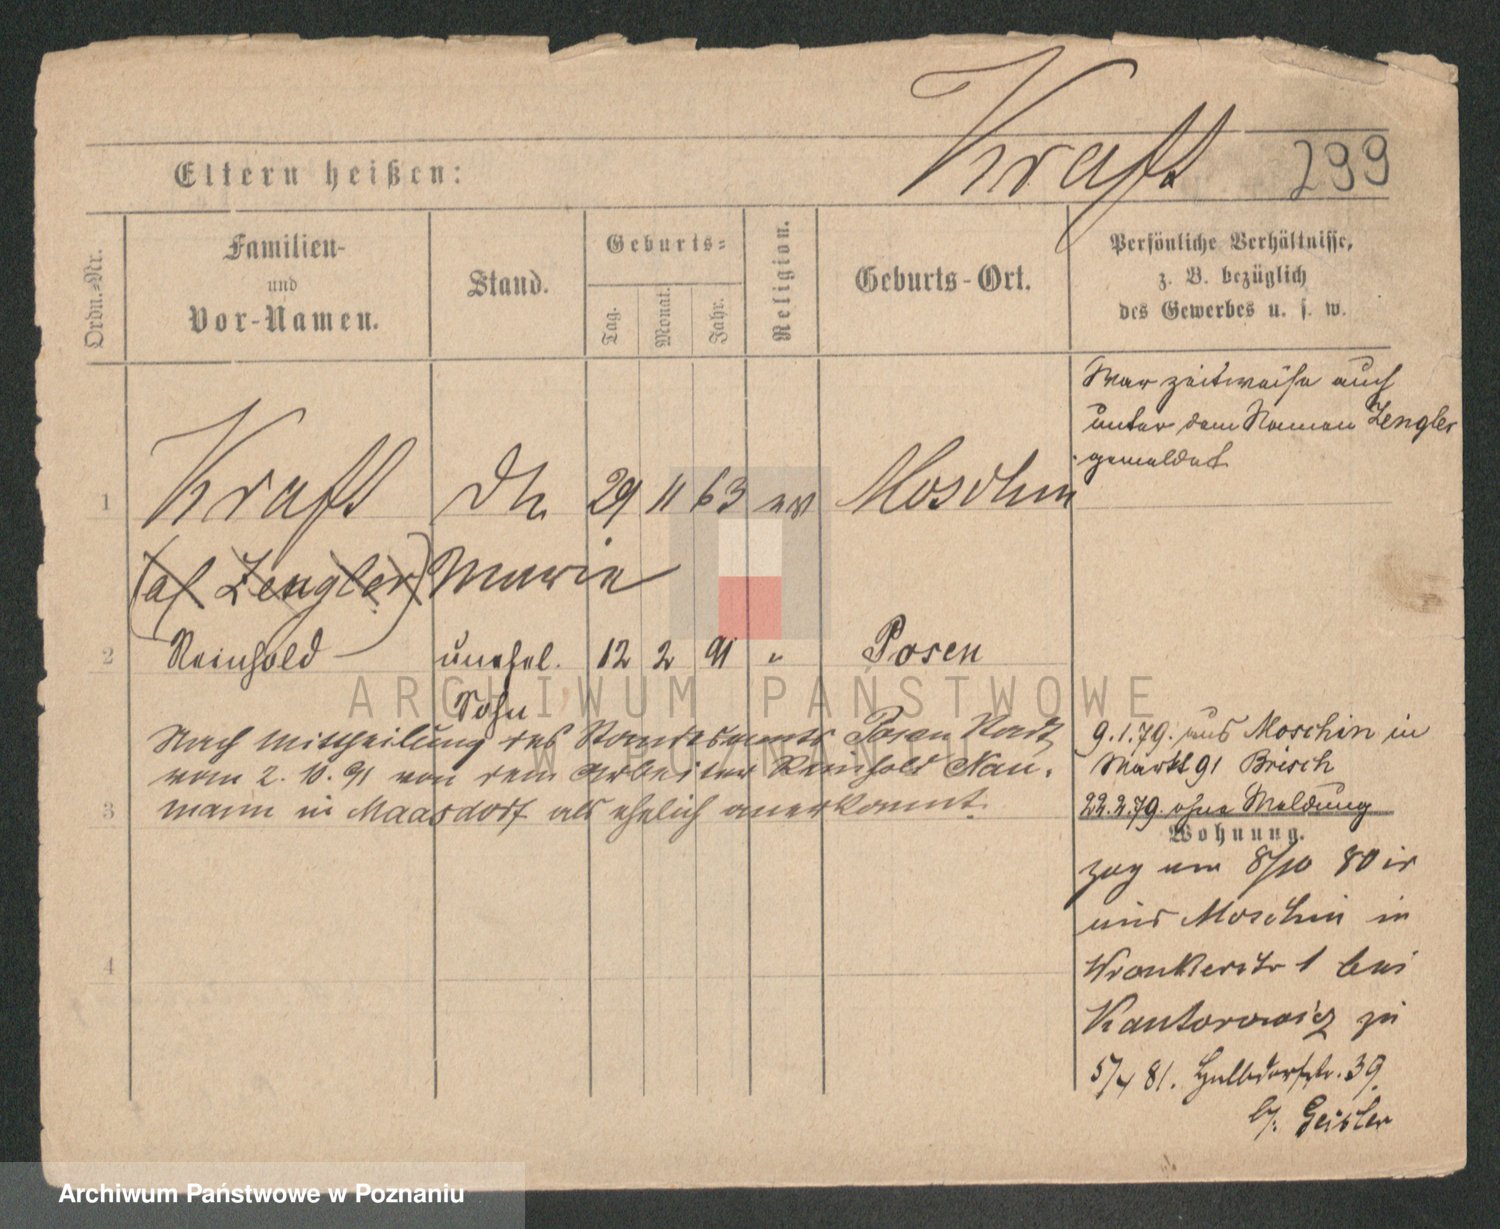 Kraft 299
Eltern heißen:
Ordn.=Nr.
Familien-
und
Vor-Namen.
Stand.
Geburts=
Tag.
Monat.
Jahr.
Religion.
Geburts-Ort.
Persönliche Verhältnisse,
z. B. bezüglich
des Gewerbes u. s. w.
War zeitweise auch
unter dem Namen Zengler
gemeldet
1 Kraft 29 11 63 ev Moschin
Zengler Marie
2 Reinhold unehel. 12 2 91 " Posen
Sohn
Nach Mittheilung des Standesamts Posen Stadt
vom 2. 10. 91 von dem Arbeiter Reinhold Nau-
mann in Maasdorf als ehelich anerkannt.
3
4
9.1.79. aus Moschin in
Markt 91 Brisch
22.2.79. ohne Meldung
Wohnung.
zog am 8/10 80
aus Moschin in
Wronkerstr 1 bei
Kantorowicz zu
5/4 81. Halbdorfstr. 39
b/. Geisler
ARCHIWUM PAŃSTWOWE
W POZNANIU
Archiwum Państwowe w Poznaniu